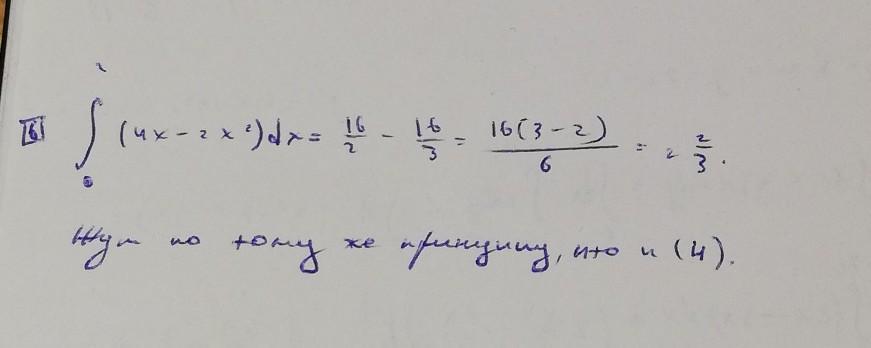 6 ∫₀² (4x - 2x²)dx = 16/2 - 16/3 = 16(3-2)/6 = 2 2/3.
Тут по тому же принципу, что и (4).